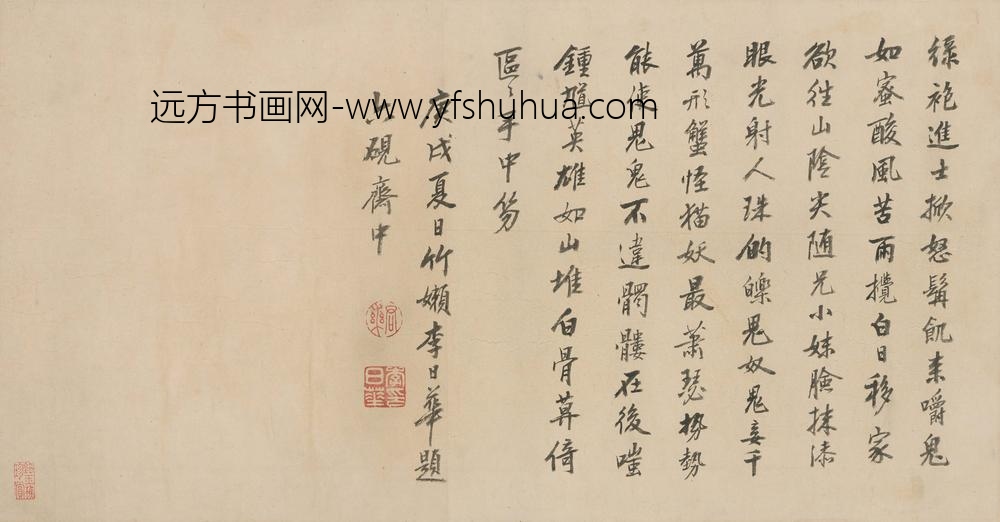 綠袍進士掀怒髯飢来嚼鬼
如蜜酸風苦雨攪白日移家
欲往山陰尖随兄小妹臉抹漆
眼光射人珠的皪鬼奴鬼妾千
萬形蟹怪猫妖最蕭瑟挩勢
鬼鬼不違髑髏在後嗤
鍾馗英雄如山堆白骨莫倚
區〻手中笏
庚戌夏日竹嬾李日華題
六硯齋中
李日華
远方书画网-www.yfshuhua.com